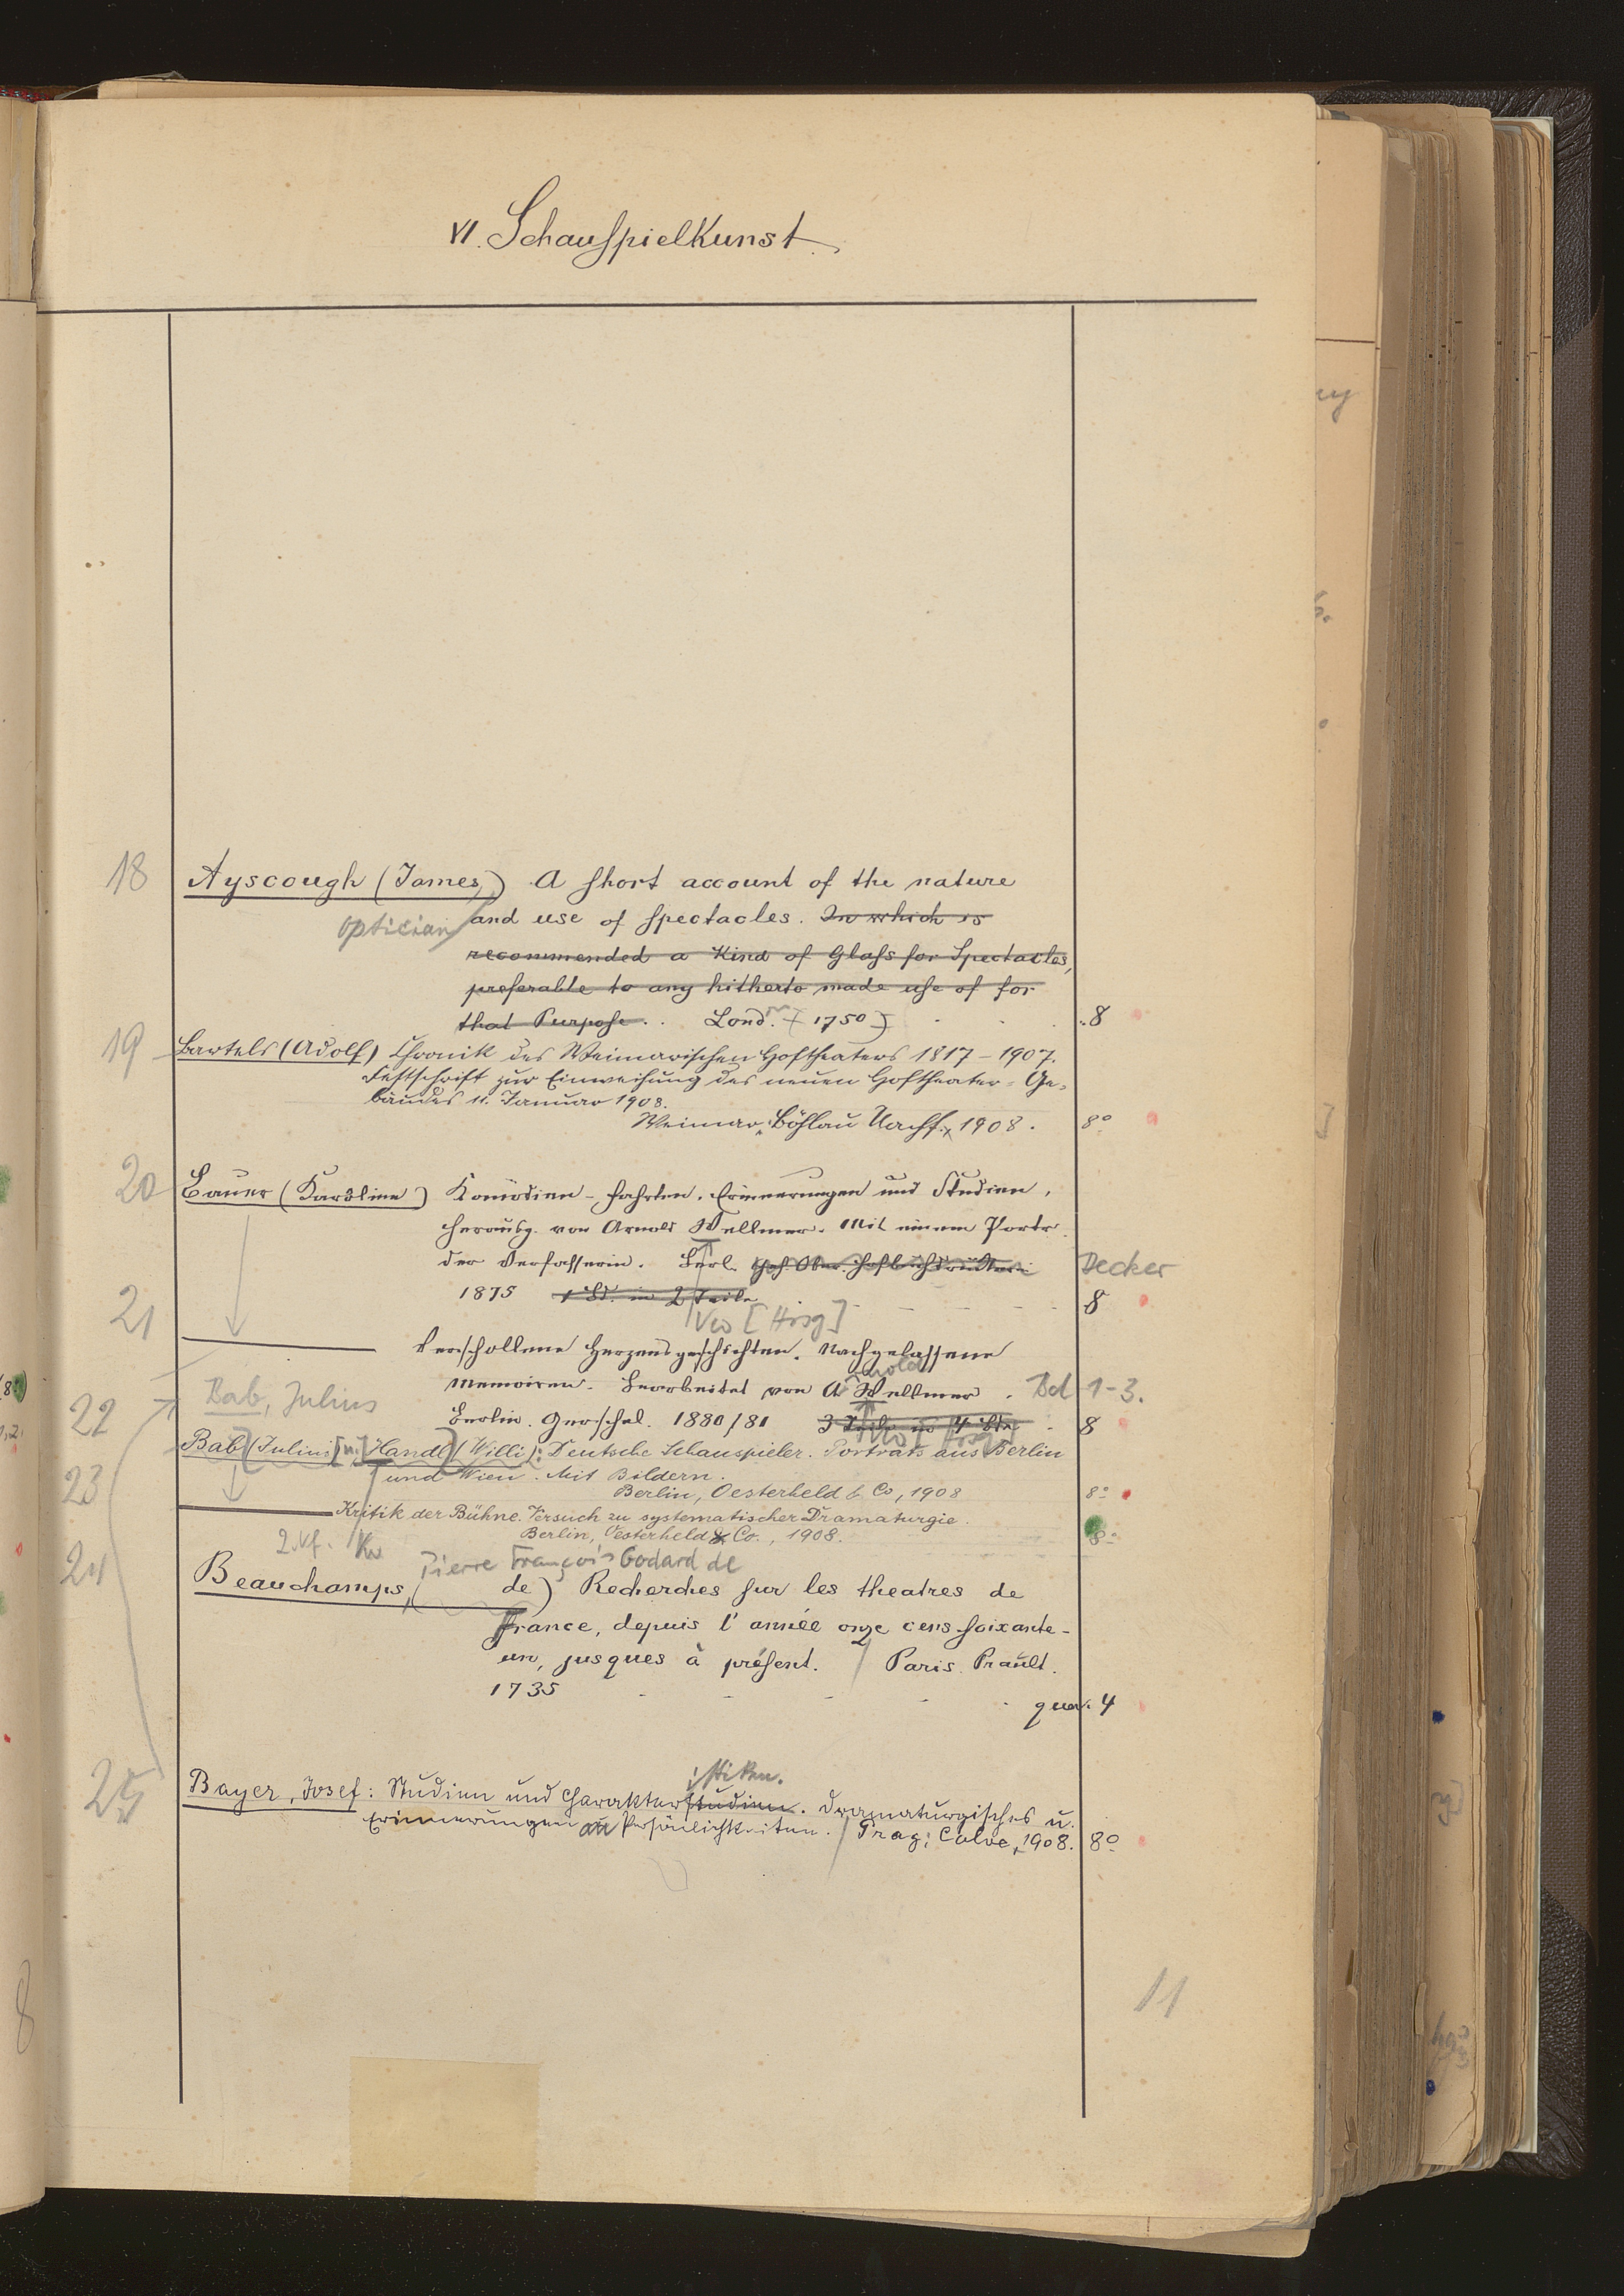 VI. Schauspielkunst.
18 Ayscough (James,) A short account of the nature
optician and use of spectacles. In which is
recommended a Kind of Glass for Spectacles,
preferable to any hitherto made use of for
that Purpose. Lond. [1750] 8
19 Bartels (Adolf) Chronik des Weimarischen Hoftheaters 1817-1907.
Festschrift zur Einweihung des neuen Hoftheater-Ge-
bäudes 11. Januar 1908.
Weimar, Böhlau Nachf., 1908. 8°
20 Bauer (Karoline) Komödien-fahrten. Erinnerungen und Studien,
herausg. von Arnold Wellmer. Mit einem Portr.
der Verfasserin. Berl. Geh. Ober. Hofbuchdruckerei Decker
1875 1 Bd. in 2 Teile 8
Vw [Hrsg]
21 Verschollene Herzensgeschichten. Nachgelassene
Arnold
Memoiren. Bearbeitet von A Wellmer. Bd 1-3.
Bab, Julius
22 Berlin. Gerschel. 1880/81 8
Bab (Julius) [u.] Handl (Willi): Deutsche Schauspieler. Porträts aus Berlin
und Wien. Mit Bildern.
23 Berlin, Oesterheld & Co, 1908 8°
Kritik der Bühne. Versuch zu systematischer Dramaturgie.
Berlin, Oesterheld & Co., 1908. 8°
2. Vf. Vw
24 Pierre François Godard de
Beauchamps, ( de) Recherches sur les theatres de
France, depuis l'année onze cens soixante-
un, jusques à présent. Paris. Prault.
1735
quer. 4
istiken.
25 Bayer, Josef: Studien und Charakterstudien. Dramaturgisches u.
Erinnerungen an Persönlichkeiten. Prag: Calve, 1908. 8°
11
8